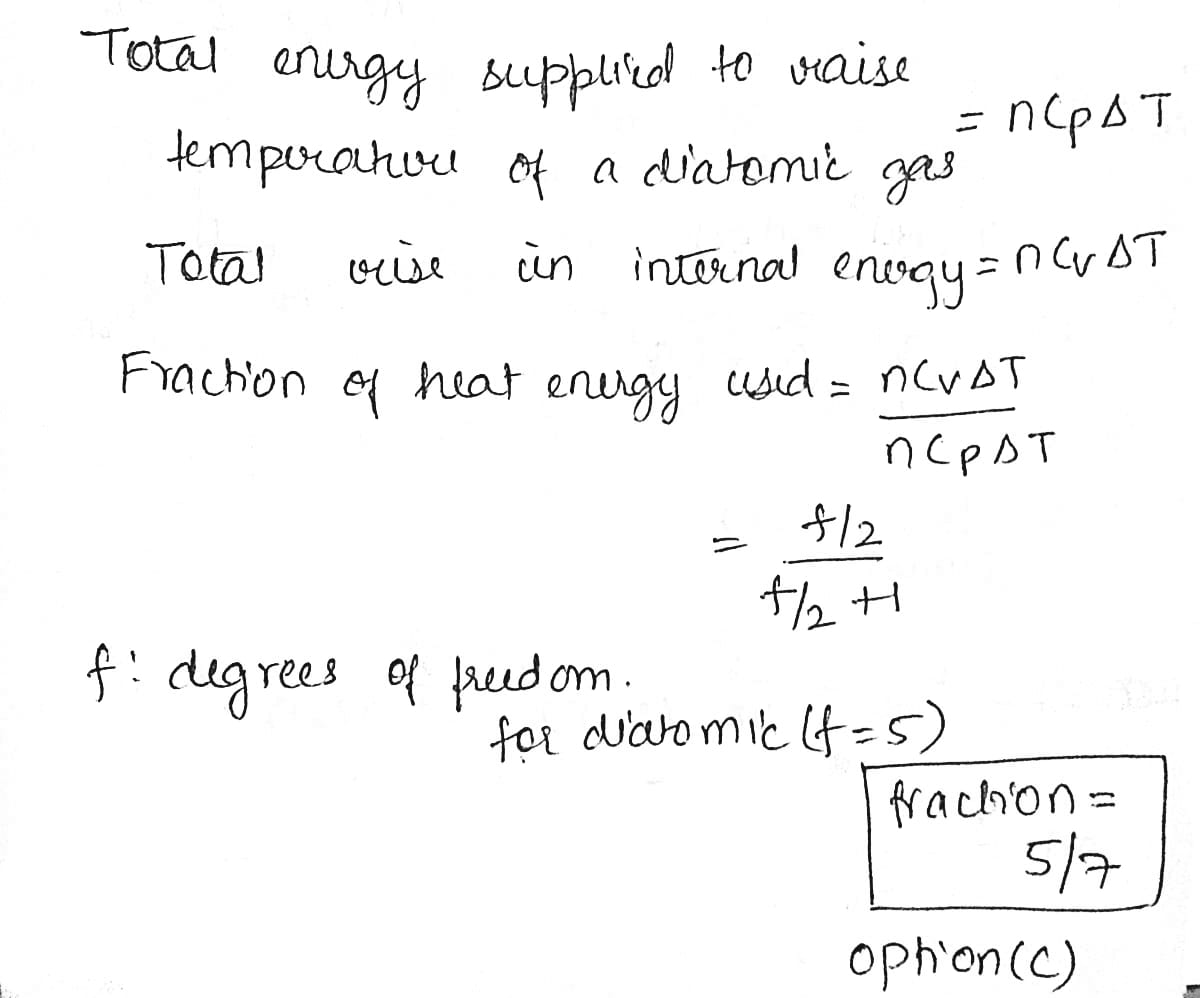 Total energy supplied to raise
temperature of a diatomic gas = nCpΔT
Total rise in internal energy = nCvΔT
Fraction of heat energy used = nCvΔT
nCpΔT
= f/2
f/2 +1
f: degrees of freedom.
for diatomic (f=5)
fraction =
5/7
option (c)